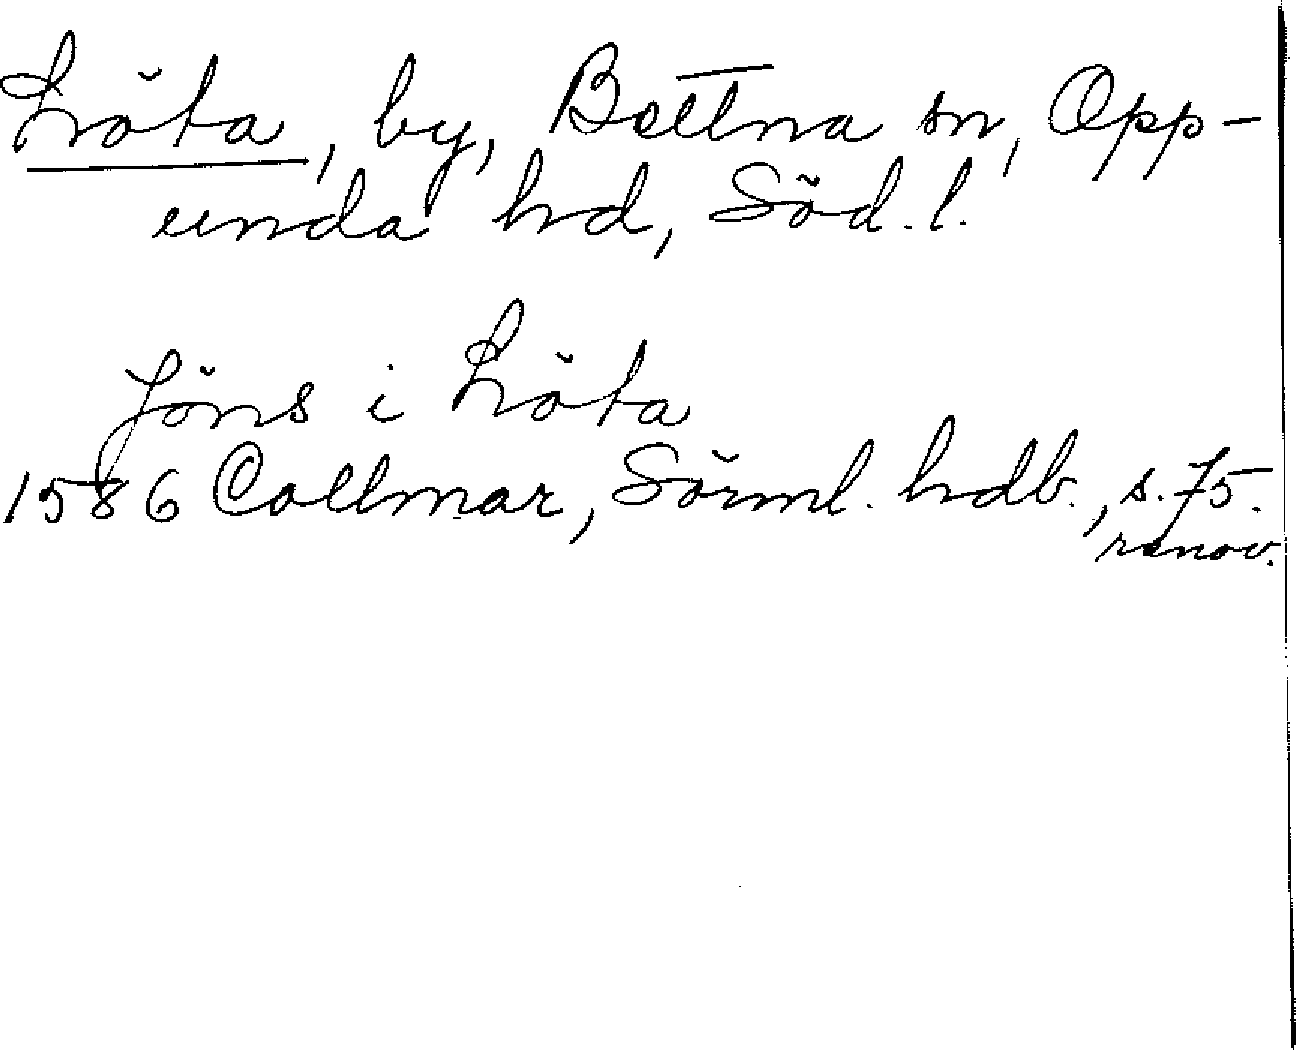 Löta, by, Bettna sn, Opp-
unda hd, Söd. l.
Jöns i Löta
1586 Collmar, Sörml. hdb., s. 75.
renov.